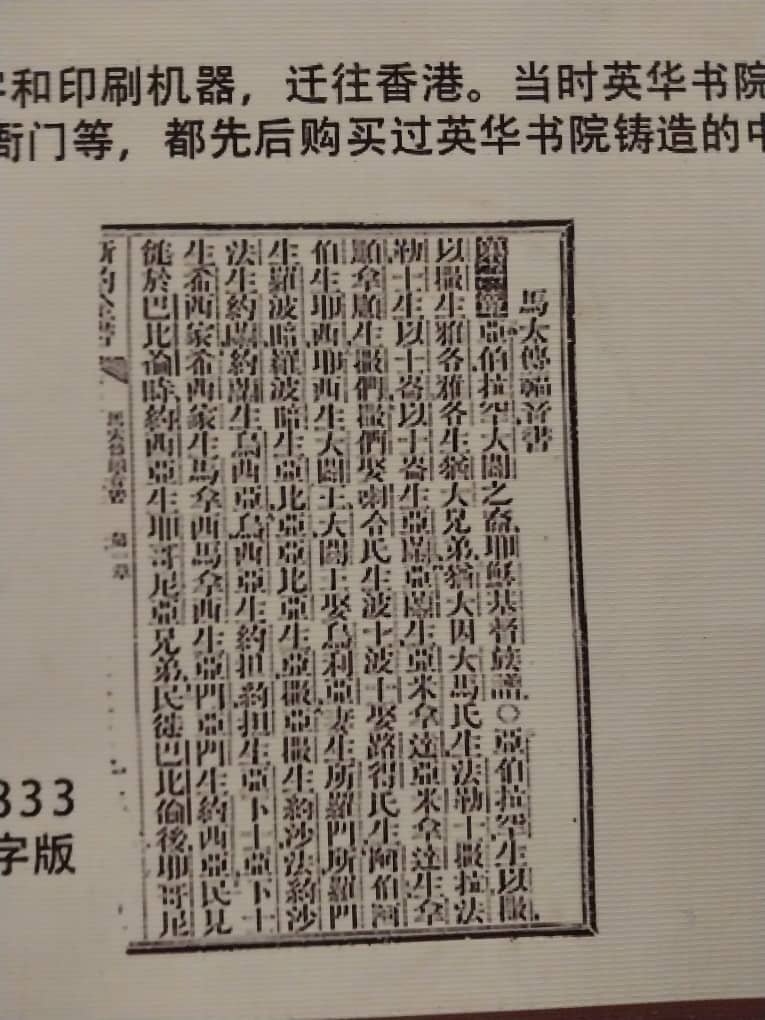 字和印刷机器，迁往香港。当时英华书院
衙门等，都先后购买过英华书院铸造的中
馬太傳福音書
第一章亞伯拉罕大闢之裔、耶穌基督族譜、〇亞伯拉罕生以撒、
以撒生雅各、雅各生猶大兄弟、猶大因大馬氏生法勒士撒拉、法
勒士生以士崙、以士崙生亞蘭、亞蘭生亞米拿達、亞米拿達生拿
順、拿順生撒們、撒們娶喇合氏生波士、波士娶路得氏生阿伯、阿
伯生耶西、耶西生大闢王、大闢王娶烏利亞妻生所羅門、所羅門
生羅波暗、羅波暗生亞比亞、亞比亞生亞撒、亞撒生約沙法、約沙
法生約蘭、約蘭生烏西亞、烏西亞生約担、約担生亞卜士、亞卜士
生希西家、希西家生馬拿西、馬拿西生亞門、亞門生約西亞、民見
徙於巴比倫時、約西亞生耶哥尼亞兄弟、民徙巴比倫後、耶哥尼
新約全書
第一章
833
字版